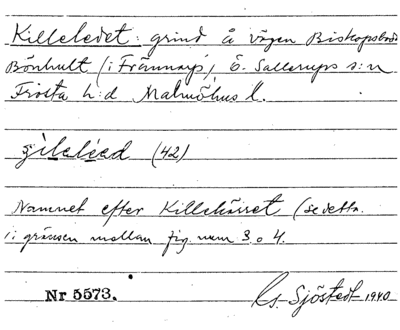 Killeledet: grind å vägen Biskopsbo-
Bönhult (i Frännarp), Ö. Sallerups s:n
Frosta h:d Malmöhus l.
(42)
Namnet efter Killekärret (se detta.
i gränsen mellan fig. num 3 o 4.
Nr 5573. Sjöstedt 1940